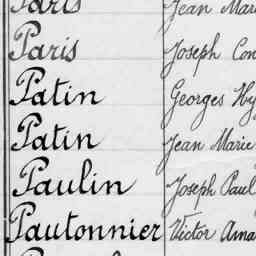 Paris Jean Mar
Paris Joseph Con
Patin Georges Hy
Patin Jean Marie
Paulin Joseph Paul
Pautonnier Victor Ama